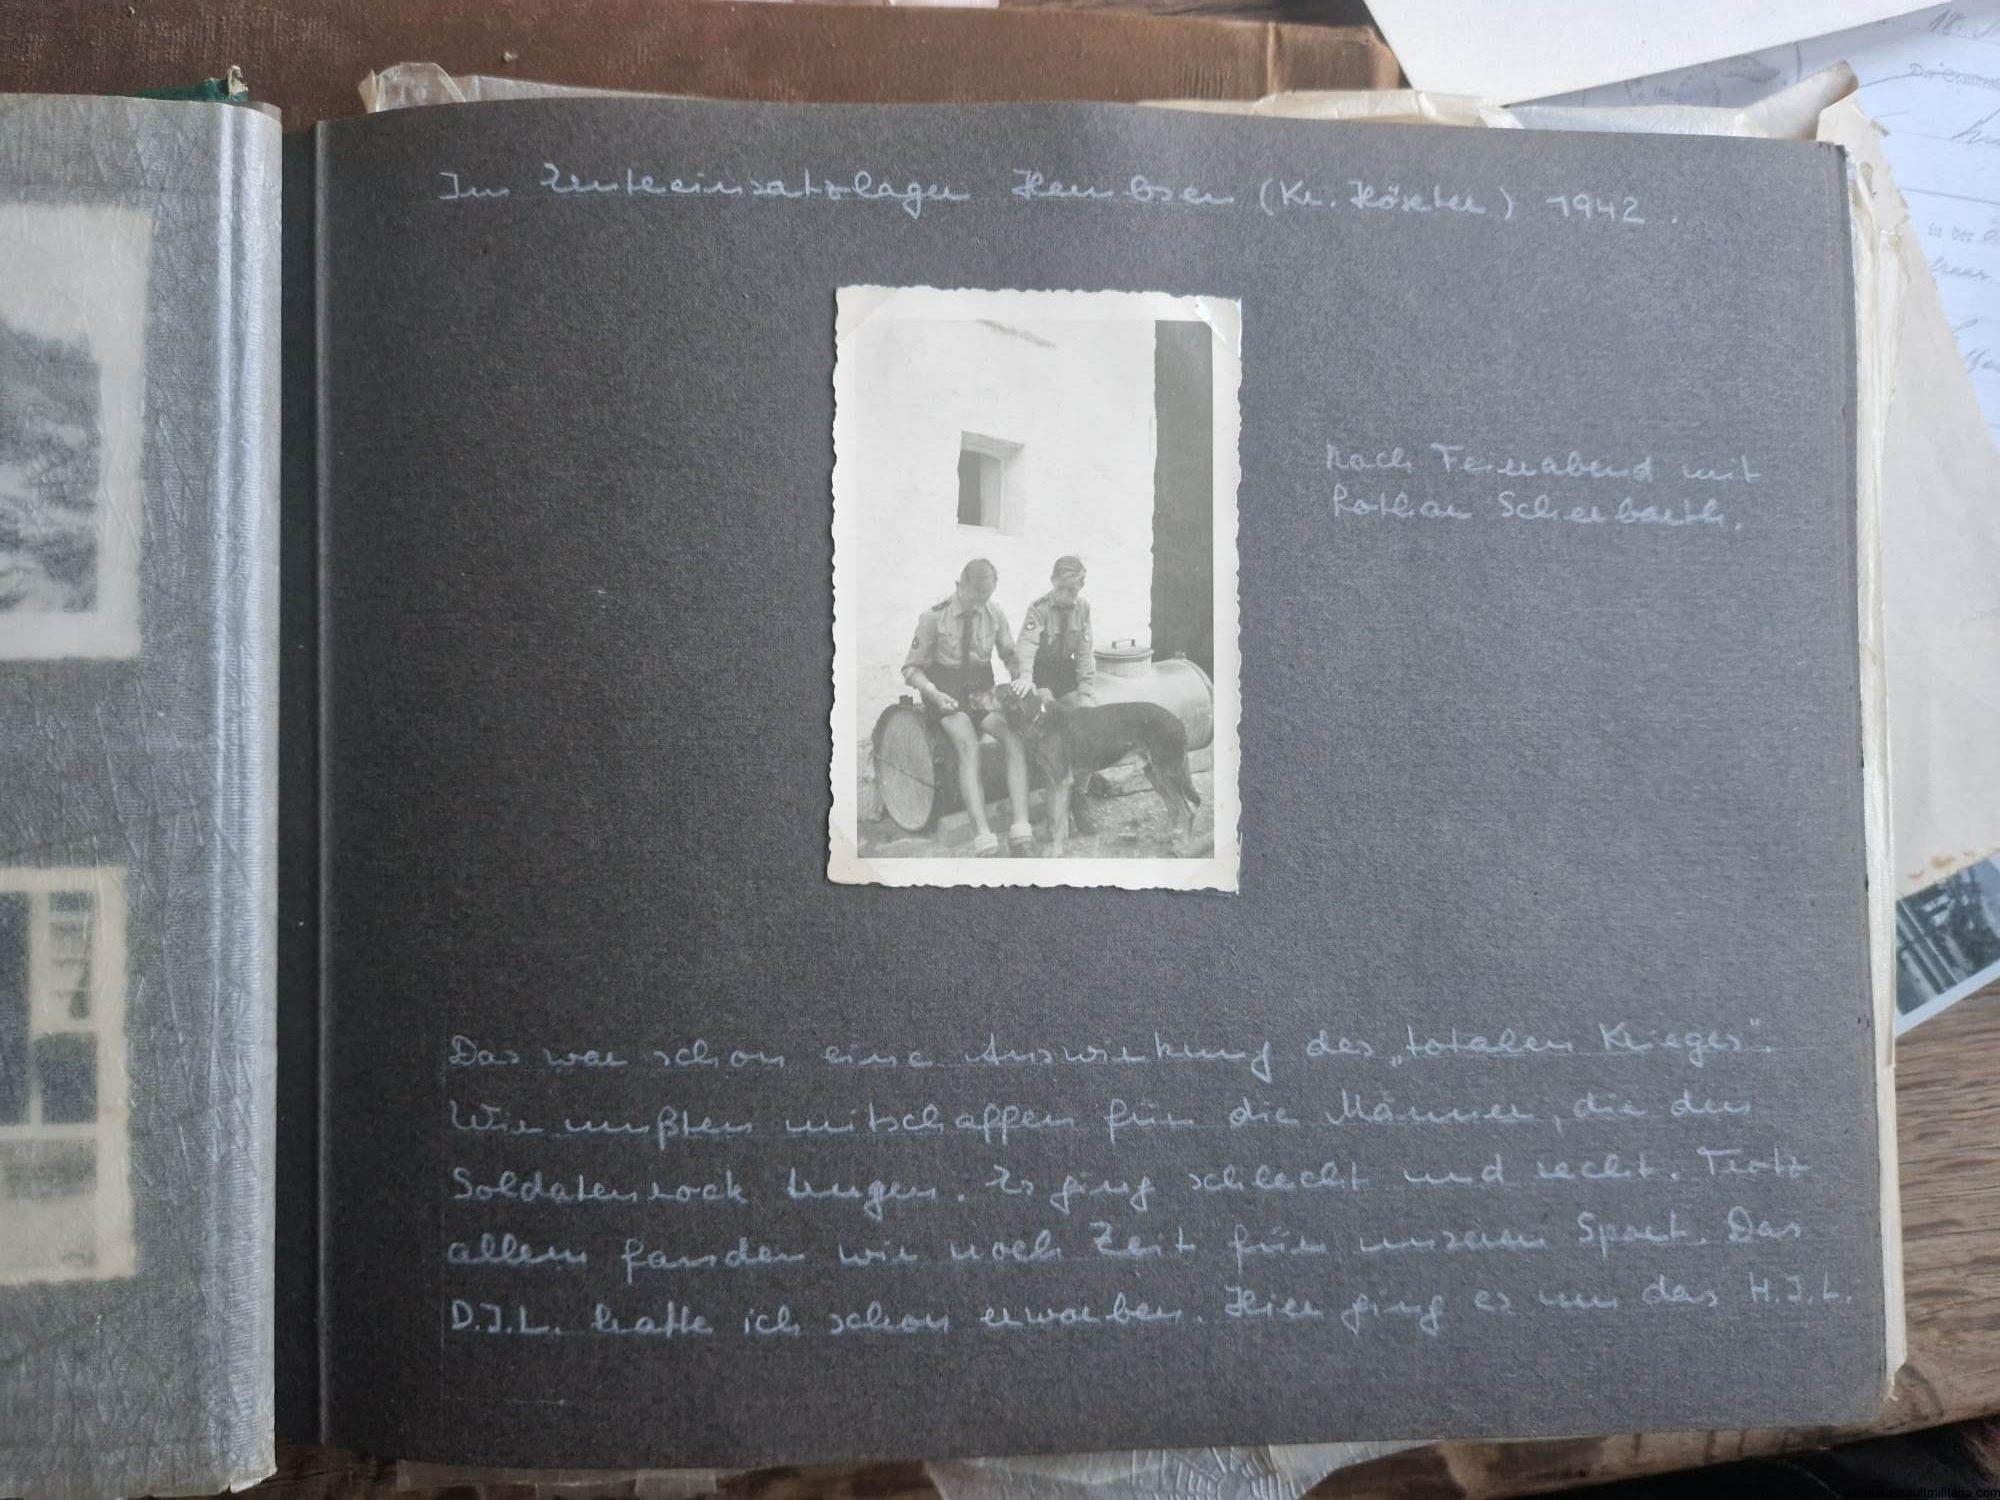 Im Ernteeinsatzlager Hembsen (Kr. Höxter) 1942.
Nach Feierabend mit
Lothar Scherbarth.
Das war schon eine Auswirkung des „totalen Krieges".
Wir mußten mitschaffen für die Männer, die den
Soldatenrock trugen. Es ging schlecht und recht. Trotz
allem fanden wir noch Zeit für unseren Sport. Das
D.J.L. hatte ich schon erworben. Hier ging es um das H.J.L.
18.
in der
generalassaultmilitaria.com